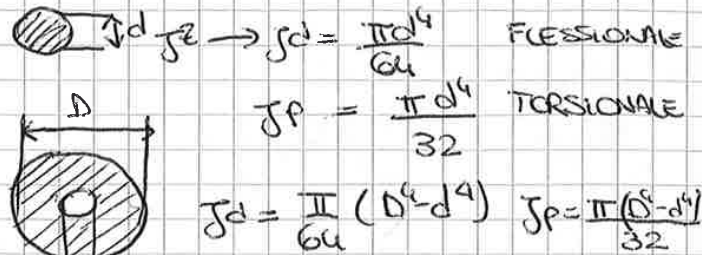 d J² → Jd = πd⁴/64 FLESSIONALE
Jp = πd⁴/32 TORSIONALE
D
Jd = π/64 (D⁴-d⁴) Jp = π(D⁴-d⁴)/32